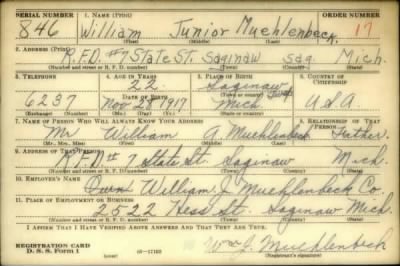 SERIAL NUMBER 1. NAME (Print) ORDER NUMBER
846 William Junior Muehlenbeck 17
(First) (Middle) (Last)
2. ADDRESS (Print)
R.F.D. #7 State St. Saginaw Sag. Mich.
(Number and street or R. F. D. number) (Town) (County) (State)
3. TELEPHONE 4. AGE IN YEARS 5. PLACE OF BIRTH 6. COUNTRY OF CITIZENSHIP
22 Saginaw
6237 DATE OF BIRTH (Town or county)
Nov 28 1917 Mich. USA
(Exchange) (Number) (Mo.) (Day) (Yr.) (State or country)
7. NAME OF PERSON WHO WILL ALWAYS KNOW YOUR ADDRESS 8. RELATIONSHIP OF THAT PERSON
Mr William A. Muehlenbeck Father
(Mr., Mrs., Miss) (First) (Middle) (Last)
9. ADDRESS OF THAT PERSON
R.F.D. # 7 State St. Saginaw Mich.
(Number and street or R. F. D. number) (Town) (County) (State)
10. EMPLOYER'S NAME
Own William J Muehlenbeck Co.
11. PLACE OF EMPLOYMENT OR BUSINESS
2522 Hess St. Saginaw Mich.
(Number and street or R. F. D. number) (Town) (County) (State)
I AFFIRM THAT I HAVE VERIFIED ABOVE ANSWERS AND THAT THEY ARE TRUE.
REGISTRATION CARD
D. S. S. Form 1 (over) 16—17105 Wm J. Muehlenbeck
(Registrant's signature)